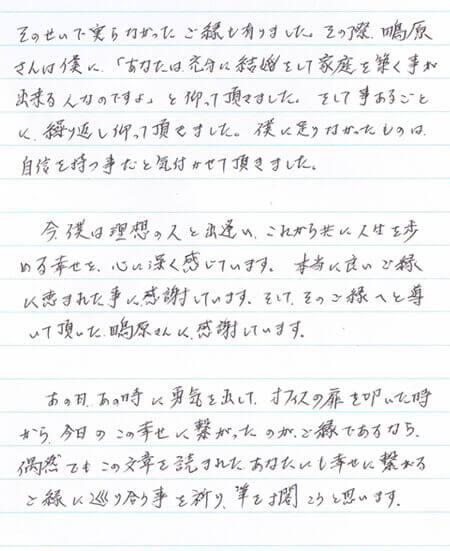 そのせいで実らなかったご縁も有りました。その際、鴫原
さんは僕に、「あなたは充分に結婚をして家庭を築く事が
出来る人なのですよ」と仰って頂きました。そして事あるごと
に、繰り返し仰って頂きました。僕に足りなかったものは、
自信を持つ事だと気付かせて頂きました。
今、僕は理想の人と出逢い、これから共に人生を歩
める幸せを、心に深く感じています。本当に良いご縁
に恵まれた事に感謝しています。そして、そのご縁へと導
いて頂いた、鴫原さんに、感謝しています。
あの日、あの時に勇気を出して、オフィスの扉を叩いた時
から、今日のこの幸せに繋がったのが、ご縁であるなら、
偶然でもこの文章を読まれたあなたにも幸せに繋がる
ご縁に巡り合う事を祈り、筆を閣こうと思います。